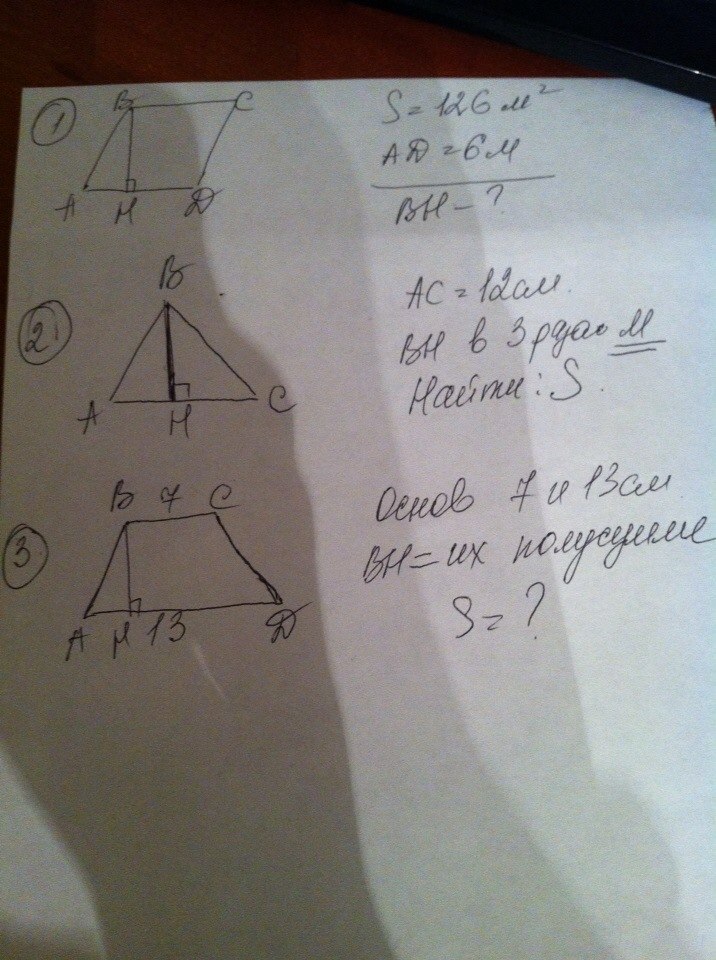 1
B C
A H D
S = 126 м²
AD = 6 м
BH - ?
2
B
A H C
AC = 12 см.
BH в 3 раза м
Найти: S.
3
B 7 C
A H 13 D
Основ 7 и 13 см
BH = их полусумме
S = ?